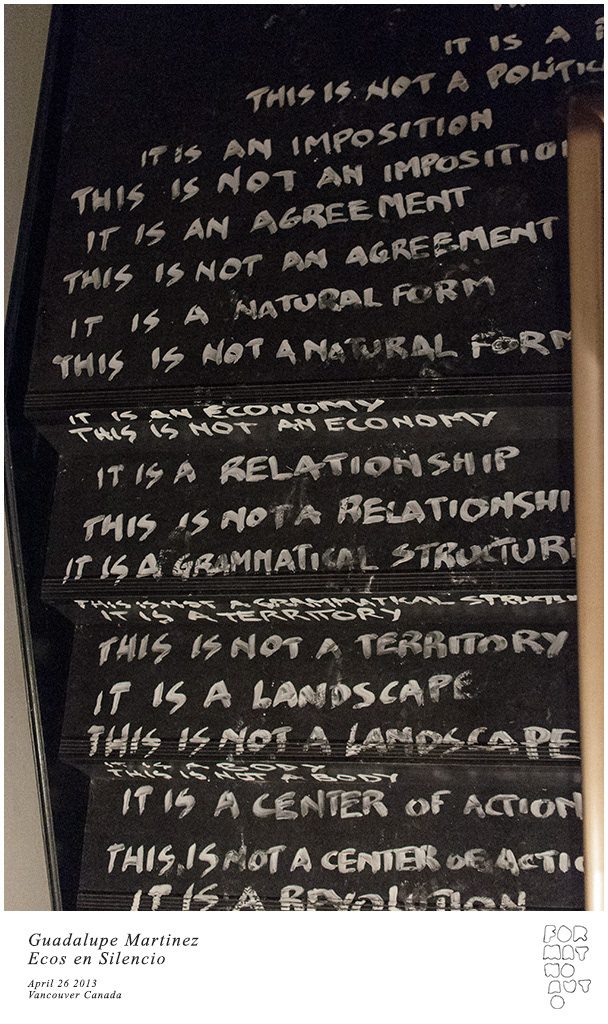 IT IS A
THIS IS NOT A POLITIC
IT IS AN IMPOSITION
THIS IS NOT AN IMPOSITIO
IT IS AN AGREEMENT
THIS IS NOT AN AGREEMENT
IT IS A NATURAL FORM
THIS IS NOT A NATURAL FORM
IT IS AN ECONOMY
THIS IS NOT AN ECONOMY
IT IS A RELATIONSHIP
THIS IS NOT A RELATIONSHI
IT IS A GRAMMATICAL STRUCTUR
THIS IS NOT A GRAMMATICAL STRUCTU
IT IS A TERRITORY
THIS IS NOT A TERRITORY
IT IS A LANDSCAPE
THIS IS NOT A LANDSCAPE
IT IS A BODY
THIS IS NOT A BODY
IT IS A CENTER OF ACTION
THIS IS NOT A CENTER OF ACTIO
IT IS A REVOLUTION
Guadalupe Martinez
Ecos en Silencio
April 26 2013
Vancouver Canada
FOR
MAT
NO
AUT
O